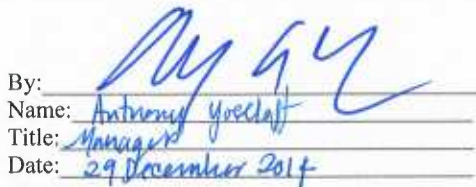 By:
Name: Anthony
Title: Manager
Date: 29 December 2014